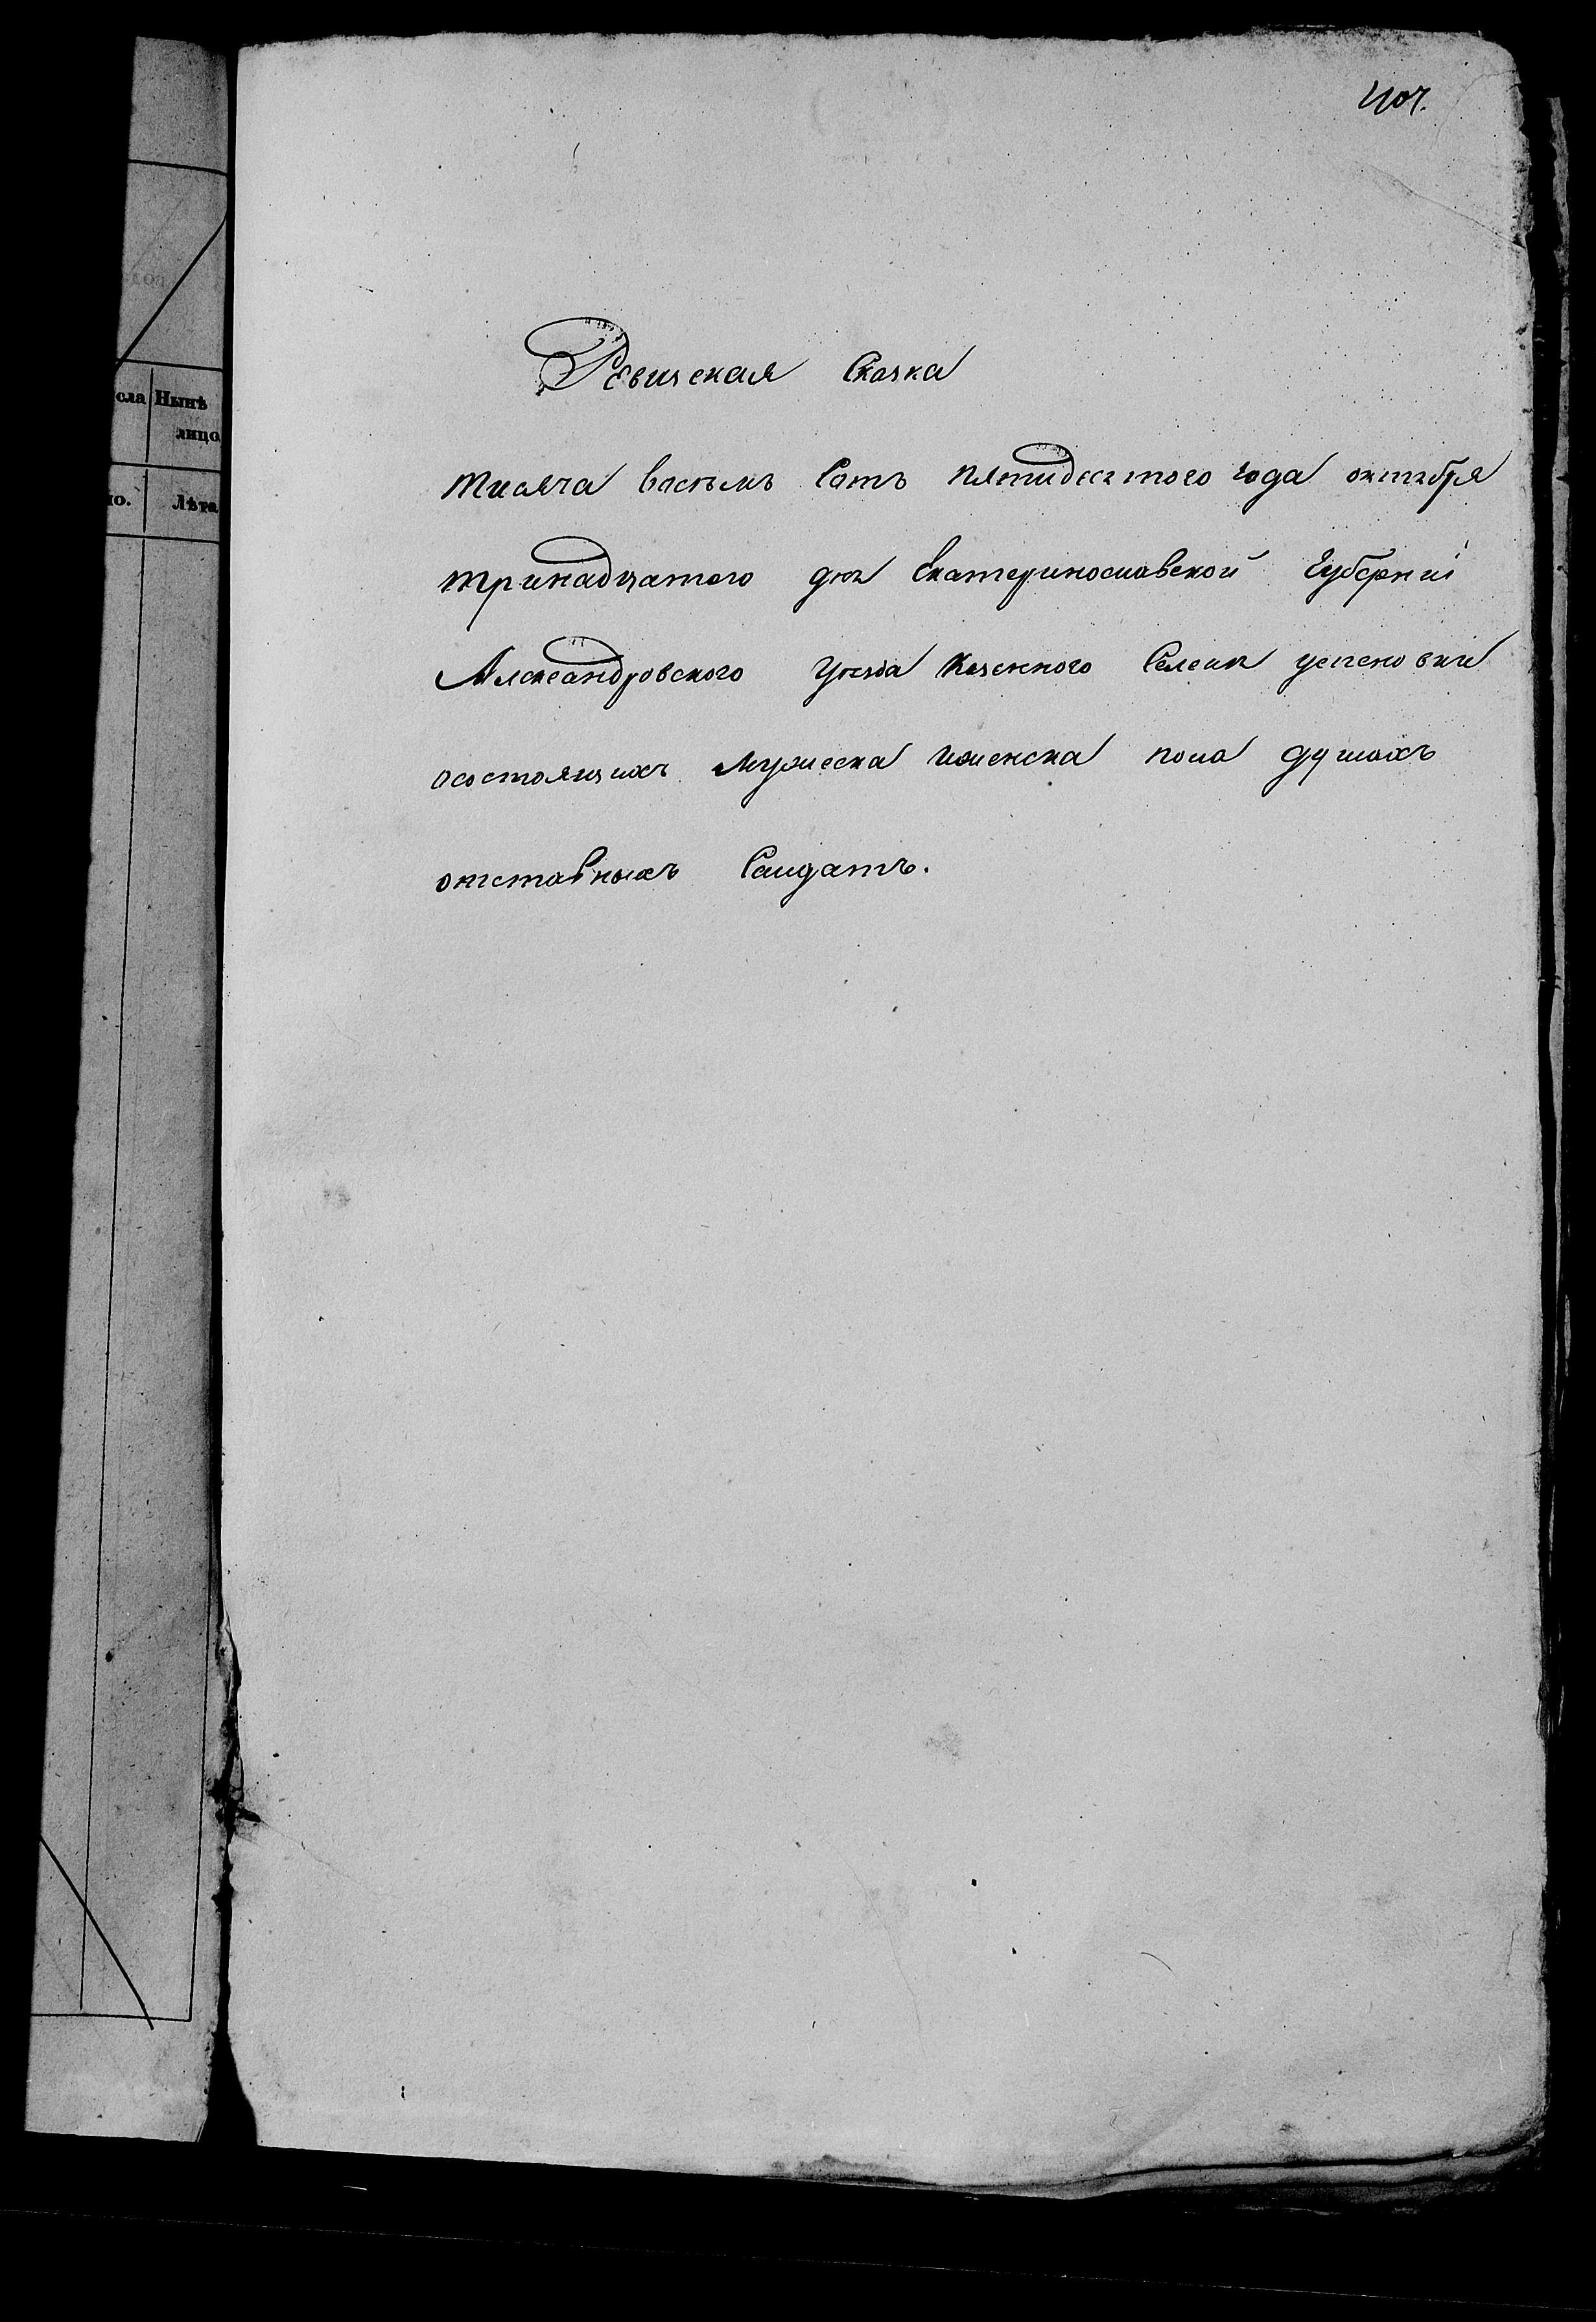 407.
Ревиская Скаска
тисяча васъмъ Сотъ пятидесятого года октября
тринадцатого дня Екатеринославской Губернии
Александровского Уезда Казенного Селения успеновки
осостоящихъ мужеска иженска пола душахъ
отставныхъ Салдатъ.
сла Нынѣ
лицо
но. Лѣта